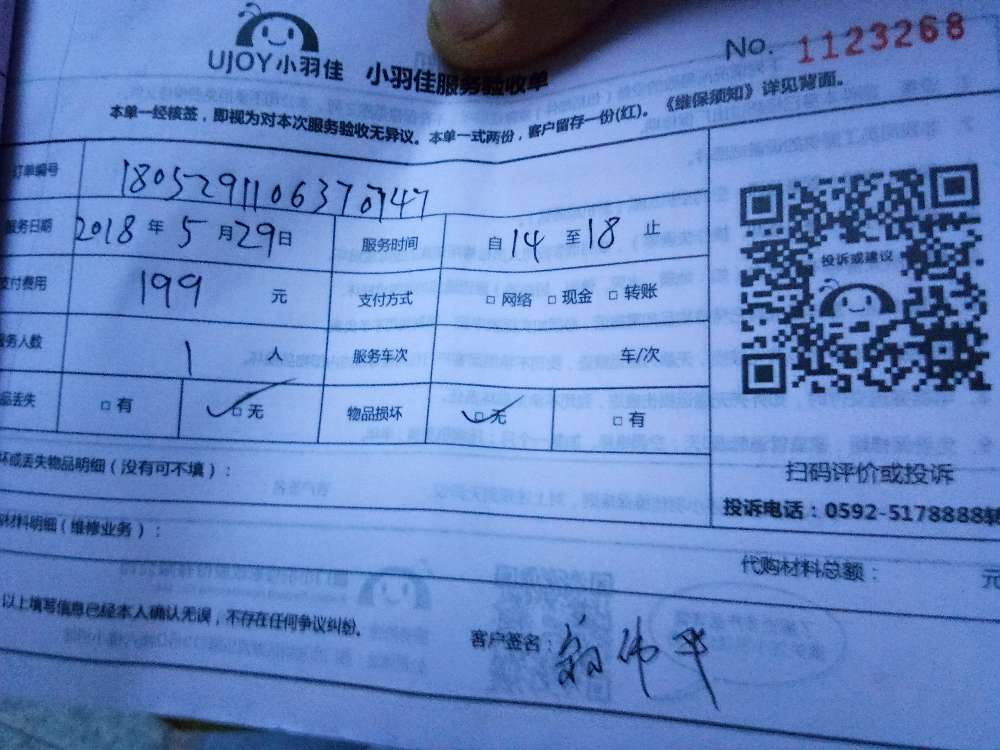 UJOY小羽佳 小羽佳服务验收单 No. 1123268
本单一经核签，即视为对本次服务验收无异议。本单一式两份，客户留存一份(红)。《维保须知》详见背面。
订单编号 180529110637
服务日期 2018 年 5 月 29 日 服务时间 自 14 至 18 止
支付费用 199 元 支付方式 □ 网络 □ 现金 □ 转账
务人数 1 人 服务车次 车/次
品丢失 □ 有 □ 无 物品损坏 □ 无 □ 有
坏或丢失物品明细（没有可不填）：
材料明细（维修业务）：
投诉或建议
扫码评价或投诉
投诉电话：0592-5178888转
代购材料总额： 元
以上填写信息已经本人确认无误，不存在任何争议纠纷。
客户签名：